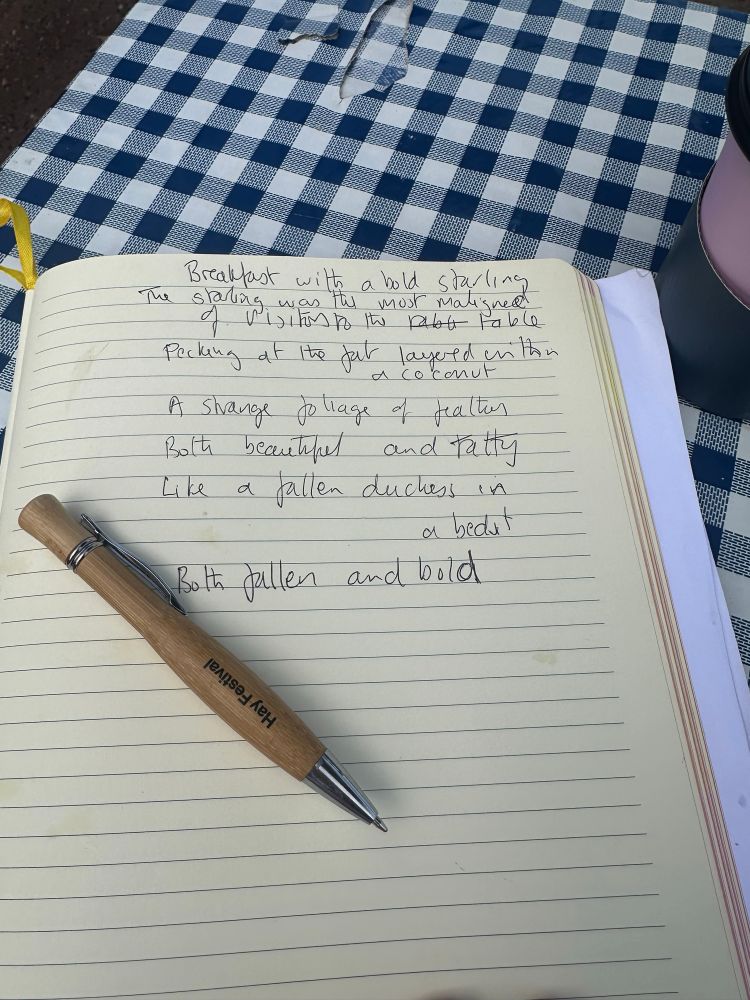 Breakfast with a bold starling
The starling was the most maligned
of visitors to the table
Pecking at the fat layered within
a coconut
A strange foliage of feathers
Both beautiful and tatty
Like a fallen duchess in
a
Both fallen and bold
Hay Festival